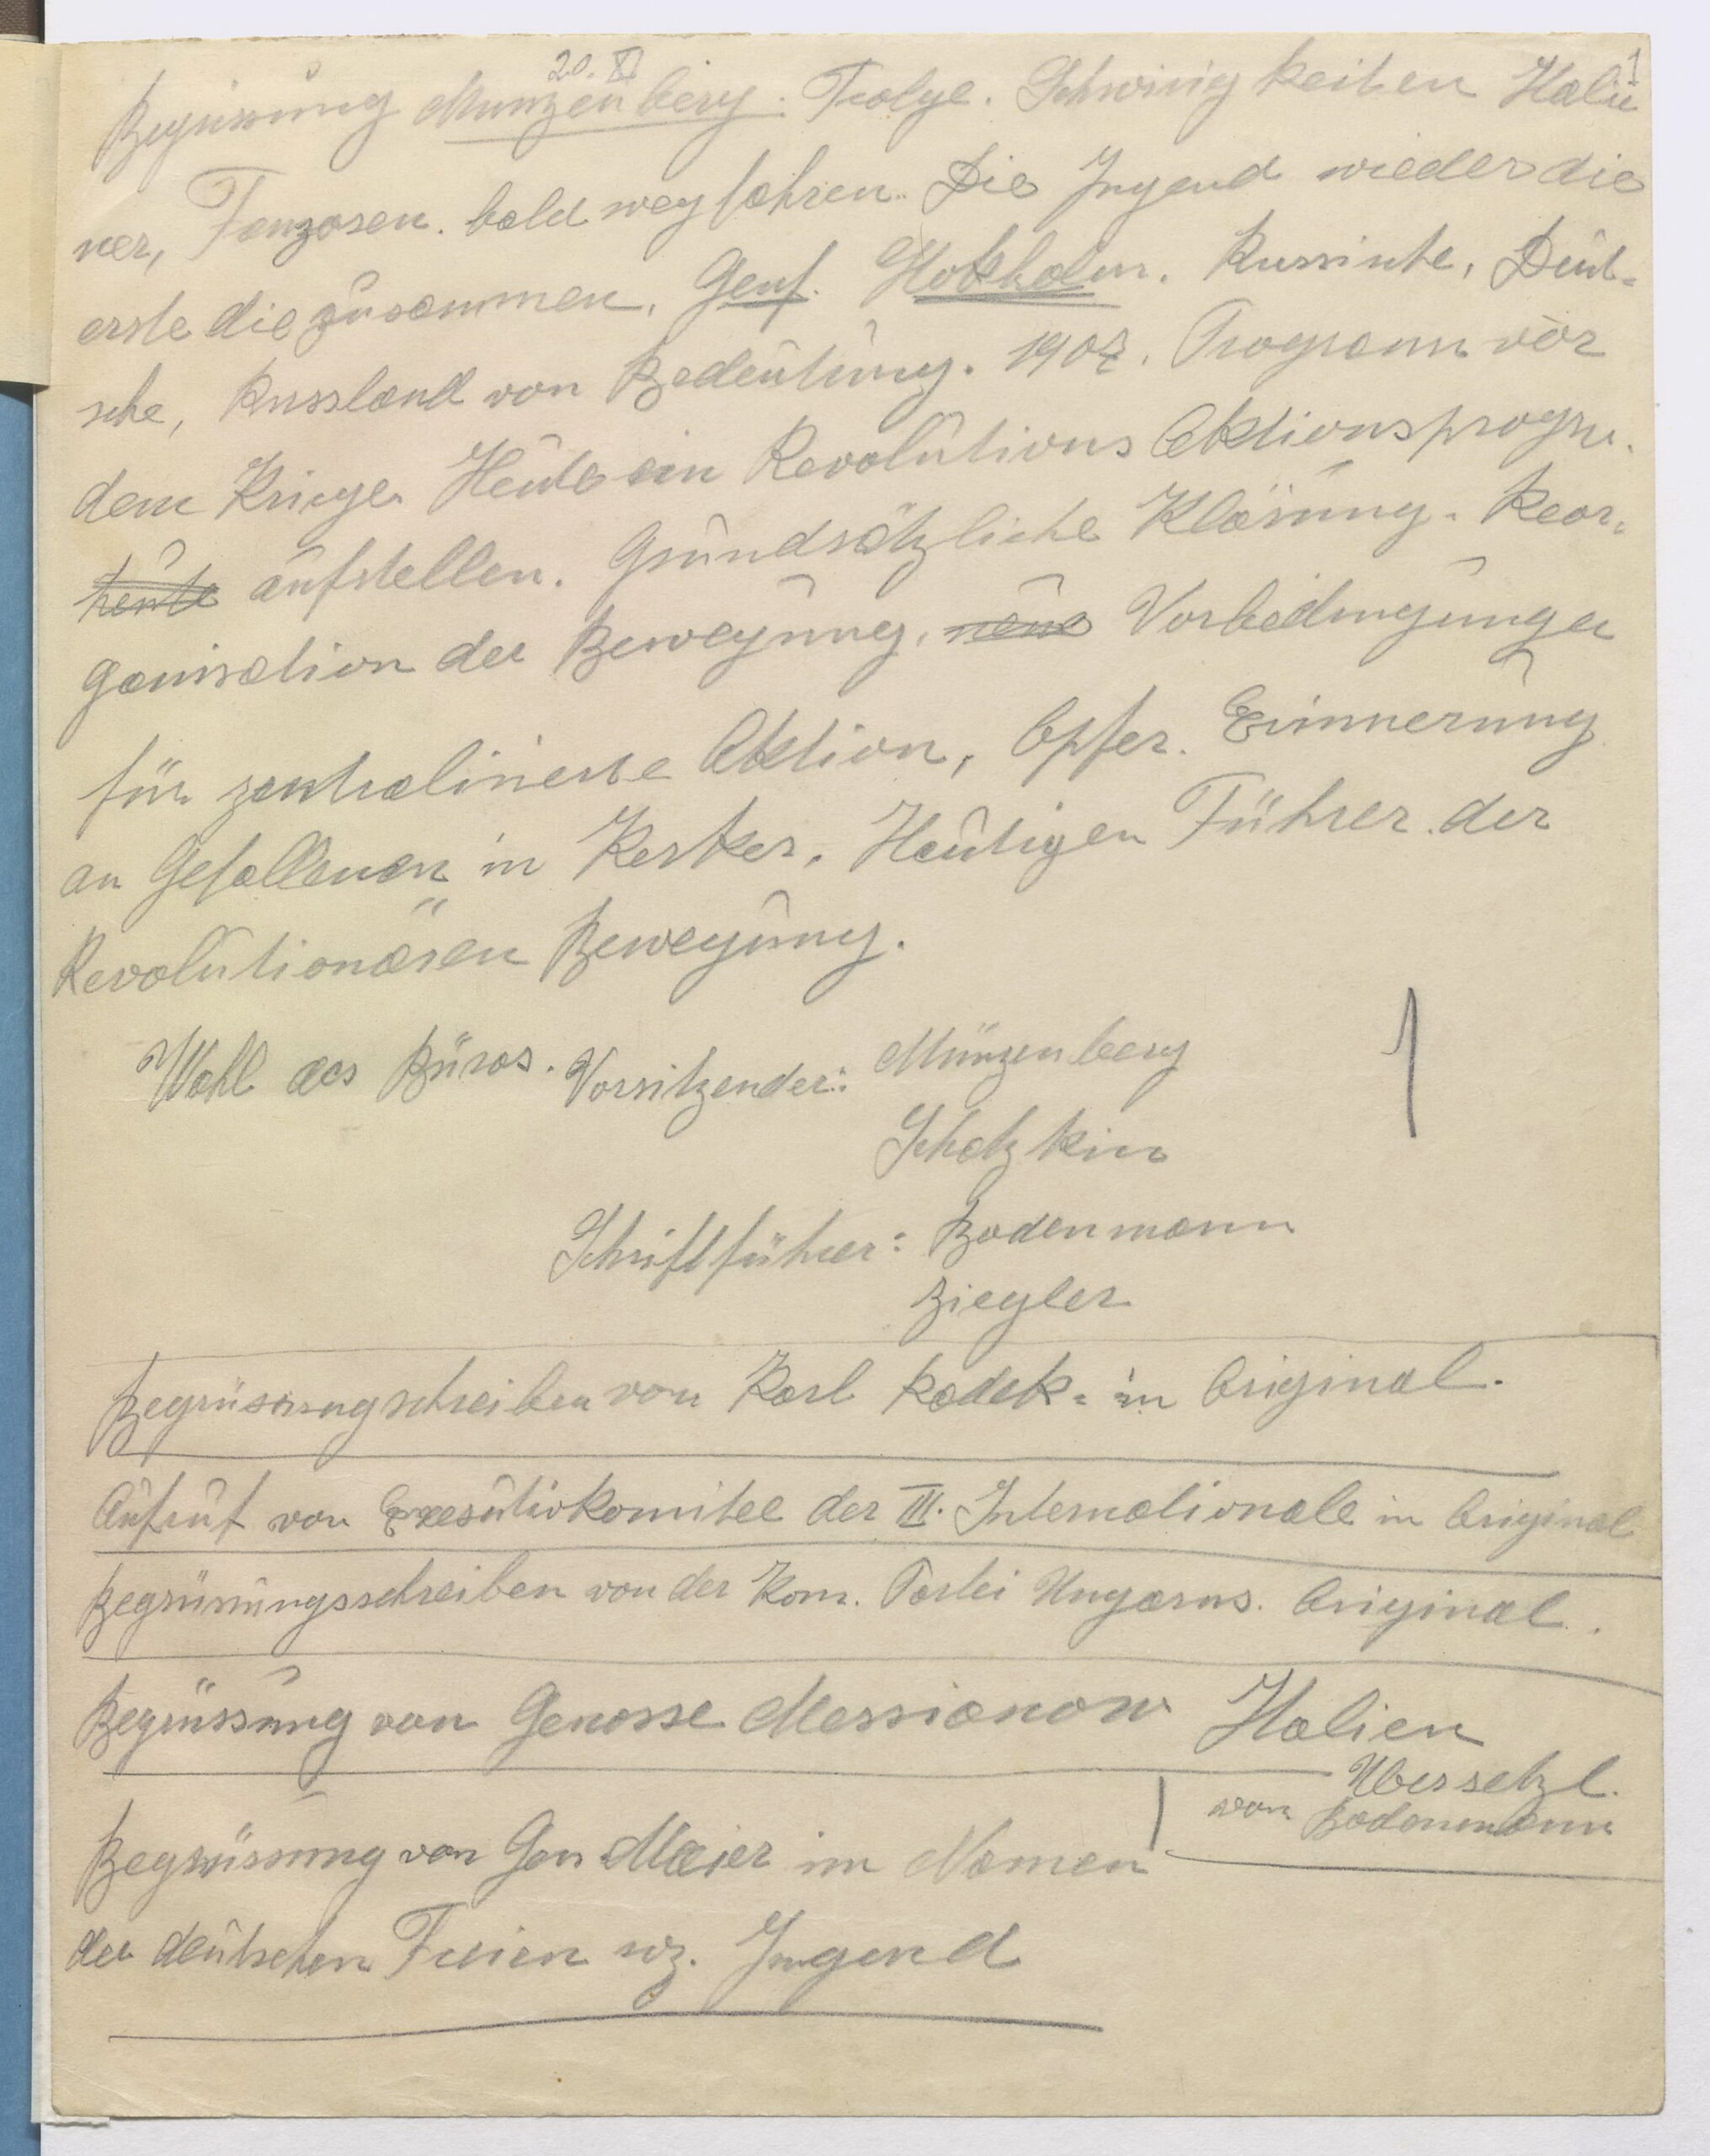 20. XI
1
Begrüssung Münzenberg: Trolge. Schwirigkeiten Italie
ner, Fanzosen. bald wegfahren. Die Jugend wieder die
erste die zusammen. Genf. Stokholm. Russische, Deut-
sche, Russland von Bedeutung. 1907. Programm vor
dem Kriege. Heute ein Revolutions Aktionsprogr.
heute aufstellen. Grundsätzliche Klärung. Reor-
ganisation der Bewegung. neue Vorbedingungen
für zentralisierte Aktion, Opfer. Erinnerung
an Gefallenen in Kerker. Heutigen Führer der
Revolutionären Bewegung.
Wahl des Büros. Vorsitzender: Münzenberg
Schatzkin
Schriftführer: Bodenmann
Ziegler
Begrüssungschreiben von Karl Radek = im Original.
Aufruf von Exekutivkomitee der III. Internationale in Original
Begrüssungsschreiben von der Kom. Partei Ungarns. Original.
Begrüssung von Genosse Messianow Italien
Übersetzt.
von Bodenmann
Begrüssung von Gen Maier im Namen
der deutschen Freien soz. Jugend